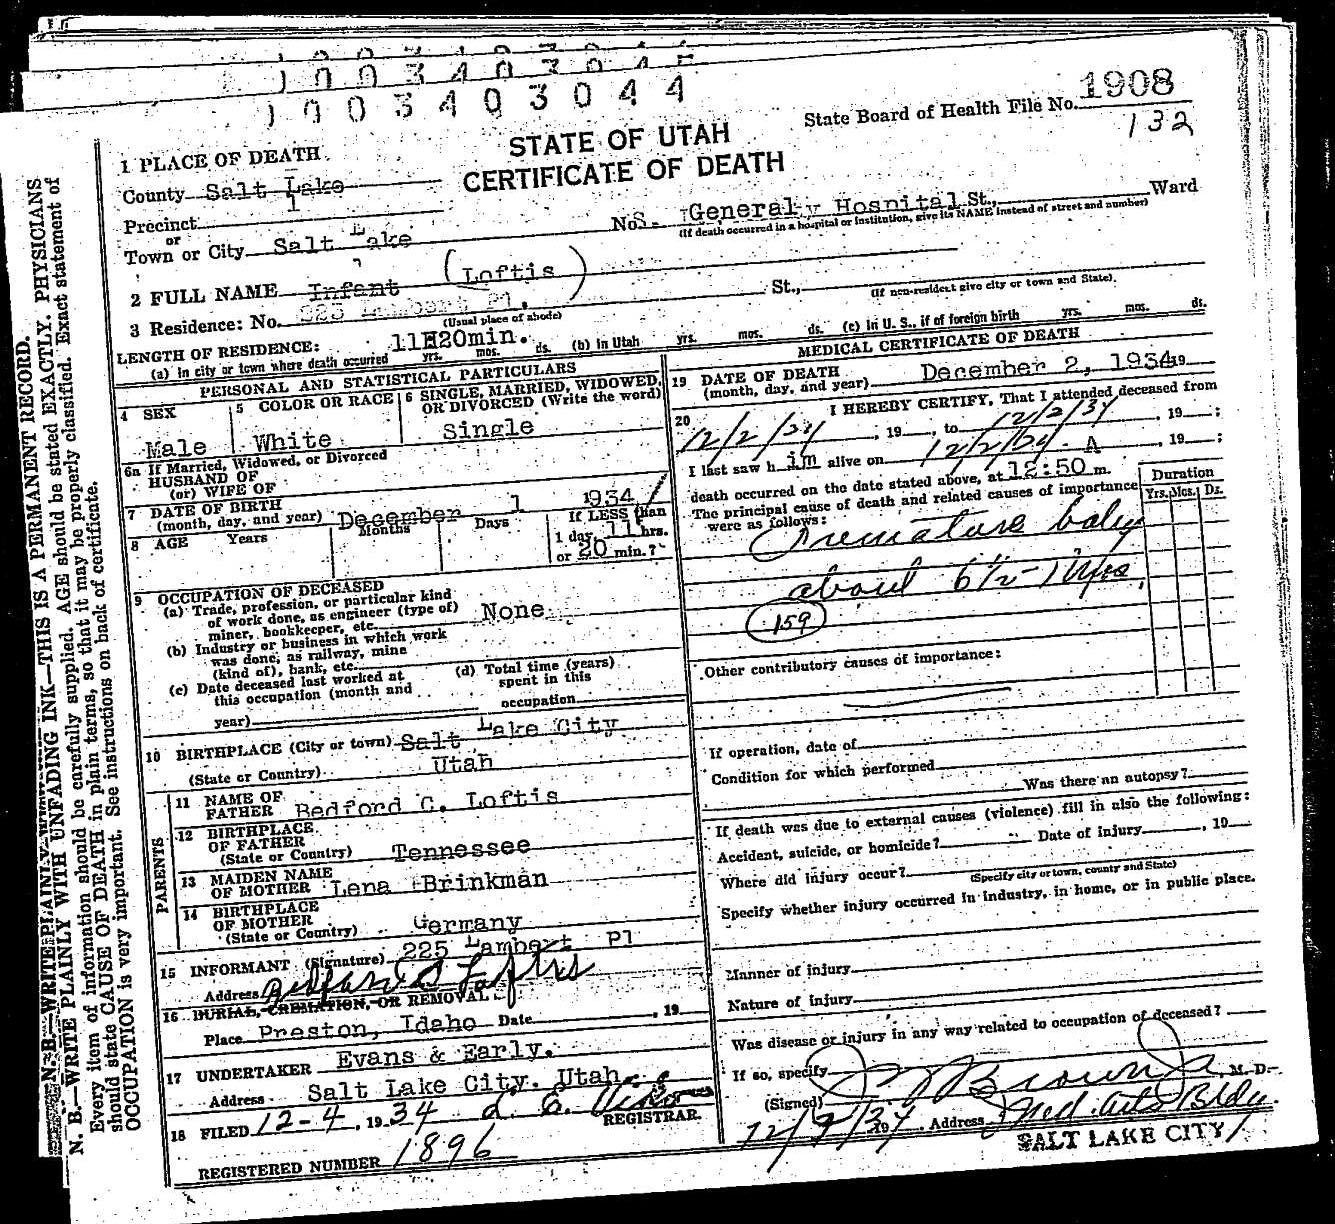 1003403044
State Board of Health File No. 1908
132
STATE OF UTAH
CERTIFICATE OF DEATH
1 PLACE OF DEATH
County Salt Lake
Precinct
or
Town or City Salt Lake
No. General Hospital St., Ward
(If death occurred in a hospital or institution, give its NAME instead of street and number)
2 FULL NAME Infant (Loftis)
3 Residence: No. St.,
(Usual place of abode)
(If non-resident give city or town and State).
LENGTH OF RESIDENCE: 11H20min.
(a) in city or town where death occurred yrs. mos. ds. (b) in Utah yrs. mos. ds. (c) in U. S., if of foreign birth yrs. mos. ds.
PERSONAL AND STATISTICAL PARTICULARS
4 SEX Male
5 COLOR OR RACE White
6 SINGLE, MARRIED, WIDOWED, OR DIVORCED (Write the word) Single
6a If Married, Widowed, or Divorced
HUSBAND OF
(or) WIFE OF
7 DATE OF BIRTH
(month, day, and year) December 1 1934
8 AGE Years Months Days If LESS than
1 day, 11 hrs.
or 20 min.?
9 OCCUPATION OF DECEASED
(a) Trade, profession, or particular kind
of work done, as engineer (type of)
miner, bookkeeper, etc. None
(b) Industry or business in which work
was done, as railway, mine
(kind of), bank, etc.
(c) Date deceased last worked at
this occupation (month and
year)
(d) Total time (years)
spent in this
occupation
10 BIRTHPLACE (City or town) Salt Lake City
(State or Country) Utah
PARENTS
11 NAME OF
FATHER Bedford C. Loftis
12 BIRTHPLACE
OF FATHER
(State or Country) Tennessee
13 MAIDEN NAME
OF MOTHER Lena Brinkman
14 BIRTHPLACE
OF MOTHER
(State or Country) Germany
225 Lambert Pl
15 INFORMANT (Signature)
Address
16 BURIAL, CREMATION, OR REMOVAL
Place Preston, Idaho Date , 19
17 UNDERTAKER Evans & Early.
Address Salt Lake City, Utah.
18 FILED 12-4, 1934 REGISTRAR
REGISTERED NUMBER 1896
MEDICAL CERTIFICATE OF DEATH
19 DATE OF DEATH
(month, day, and year) December 2, 1934 19
20 I HEREBY CERTIFY, That I attended deceased from
12/2/34, 19 , to 12/2/34, 19 ;
I last saw h im alive on 12/2/34 A , 19 ;
death occurred on the date stated above, at 12:50 m.
The principal cause of death and related causes of importance
were as follows:
Duration
Yrs. Mos. Ds.
Premature baby
about 6½-7 Mos.
159
Other contributory causes of importance:
If operation, date of
Condition for which performed
Was there an autopsy?
If death was due to external causes (violence) fill in also the following:
Accident, suicide, or homicide? Date of injury , 19
Where did injury occur?
(Specify city or town, county and State)
Specify whether injury occurred in industry, in home, or in public place.
Manner of injury
Nature of injury
Was disease or injury in any way related to occupation of deceased?
If so, specify
(Signed) Brown Jr, M. D.
12/2/34 19 Address Med. Arts Bldg.
SALT LAKE CITY
N. B.—WRITE PLAINLY WITH UNFADING INK—THIS IS A PERMANENT RECORD.
Every item of information should be carefully supplied. AGE should be stated EXACTLY. PHYSICIANS
should state CAUSE OF DEATH in plain terms, so that it may be properly classified. Exact statement of
OCCUPATION is very important. See instructions on back of certificate.